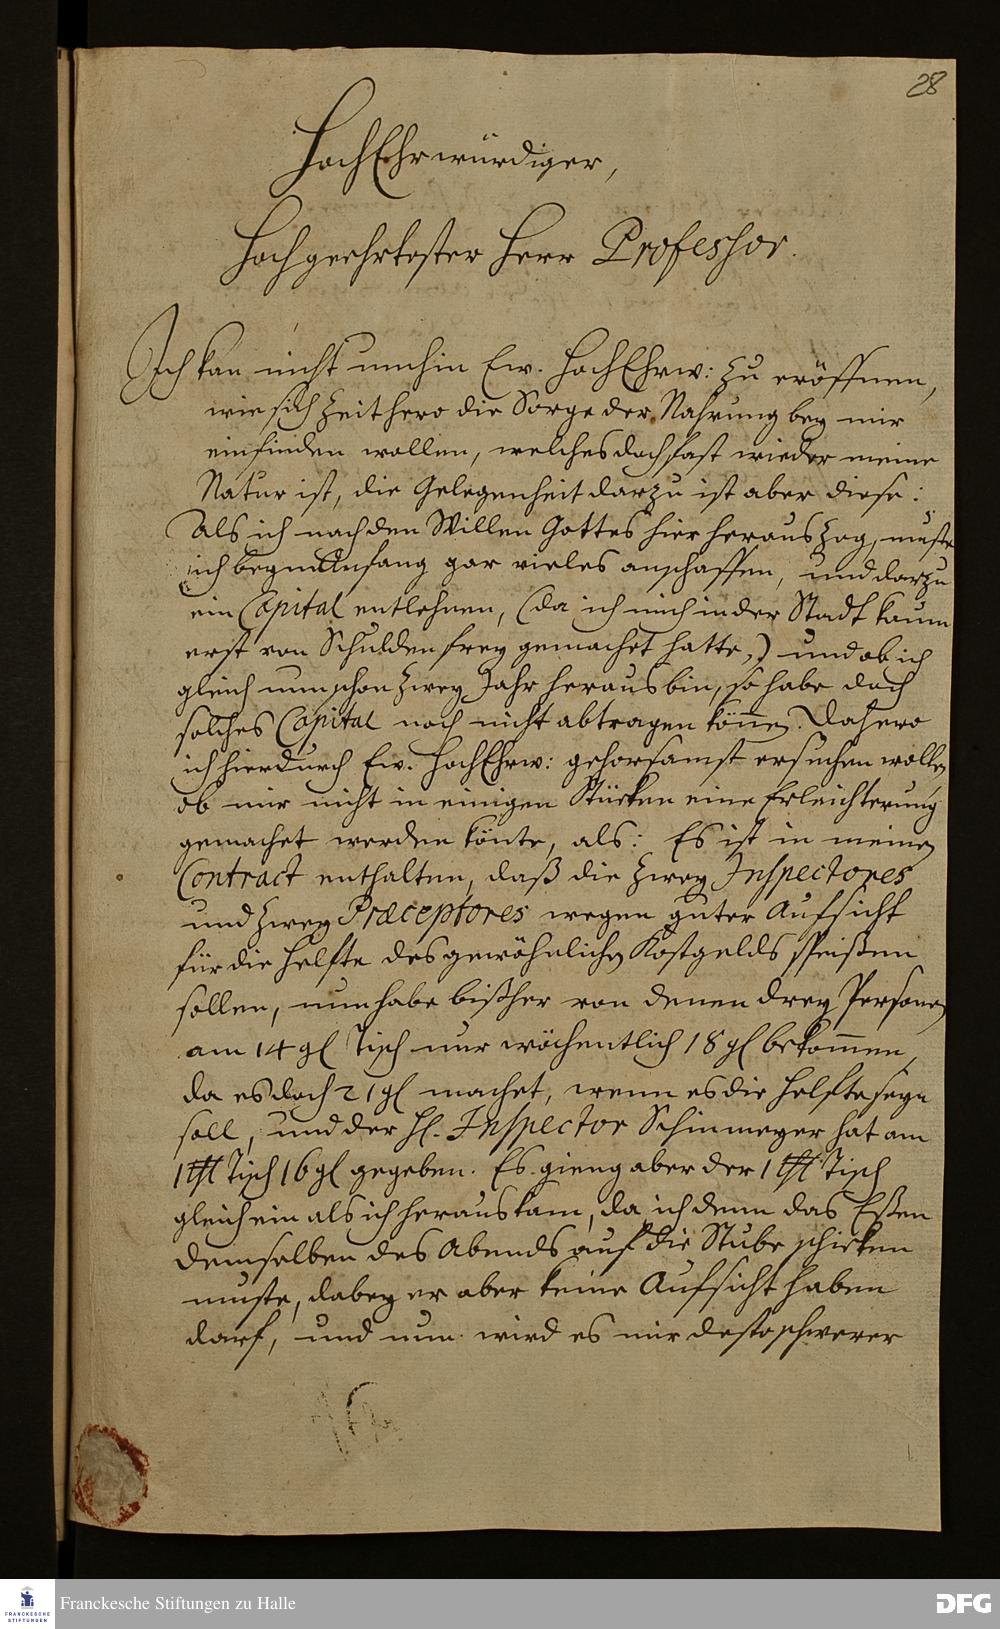 28
HochEhrwürdiger,
Hochgeehrtester Herr Professor.
Ich kan nicht umhin Ew. HochEhrw: zu eröffnen,
wie sich zeithero die Sorge der Nahrung bey mir
einfinden wollen, welches doch fast wieder meine
Natur ist, die Gelegenheit darzu ist aber diese:
Als ich nach den Willen Gottes hier heraus zog, muste
ich beym Anfang gar vieles anschaffen, und darzu
ein Capital entlehnen, (da ich mich in der Stadt kaum
erst von Schulden frey gemachet hatte,) und ob ich
gleich nun schon zwey Jahr heraus bin, so habe doch
solches Capital noch nicht abtragen könen. Dahero
ich hierdurch Ew. HochEhrw: gehorsamst ersuchen wollen,
ob mir nicht in einigen Stücken eine Erleichterung
gemachet werden könte, als: Es ist in meinen
Contract enthalten, daß die zwey Inspectores
und zwey Præceptores wegen guter Aufsicht
für die Helfte des gewöhnlichen Kostgelds speißen
sollen, nun habe bißher von denen drey Personen
am 14 gl Tisch nur wöchentlich 18 gl bekommen,
da es doch 21 gl machet, wenn es die Helfte seyn
soll, und der H. Inspector Schinmeyer hat am
1 thl Tisch 16 gl gegeben. Es gieng aber der 1 thl Tisch
gleich ein als ich heraus kam, da ich denn das Eßen
demselben des Abends auf die Stube schicken
muste, dabey er aber keine Aufsicht haben
darf, und nun wird es mir desto schwerer
Franckesche Stiftungen zu Halle
FRANCKESCHE
STIFTUNGEN
DFG